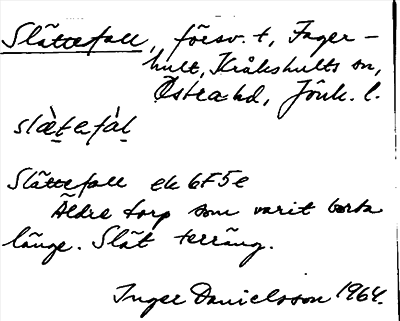 Slättefall, försv. t, Fager-
hult, Kråkshults sn,
Östra hd, Jönk. l.
slæ̀t̬efàl̬
Slättefall ek 6F5e
Äldre torp som varit borta
länge. Slät terräng.
Inger Danielsson 1964.